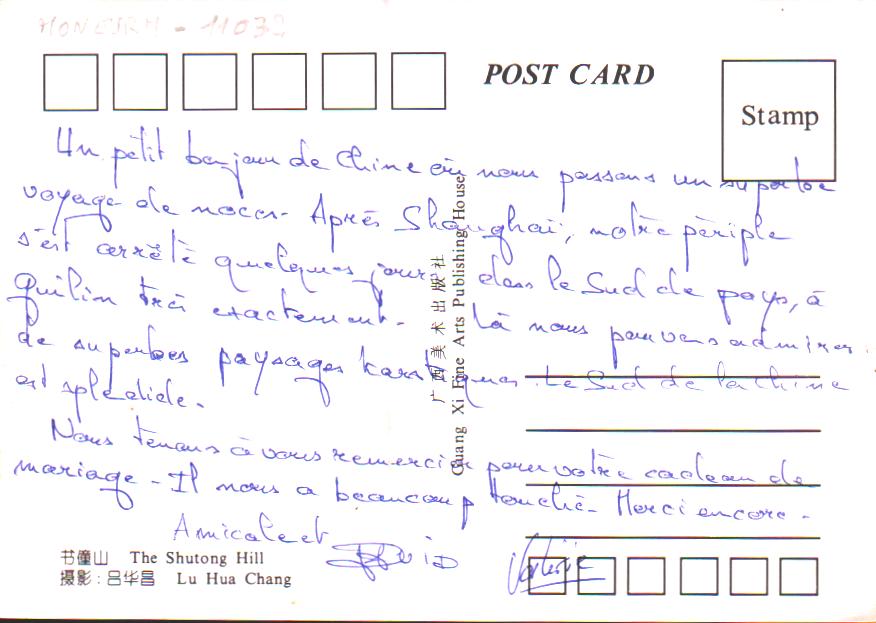 MONEURM - 11032
POST CARD
Stamp
Un petit bonjour de Chine où nous passons un superbe
voyage de noces. Après Shanghaï, notre périple
s'est arrêté quelques jours dans le Sud de pays, à
Guilin très exactement. Là nous pouvons admirer
de superbes paysages karstiques. Le Sud de la Chine
est splendide.
Nous tenons à vous remercier pour votre cadeau de
mariage. Il nous a beaucoup touché. Merci encore.
Amicalement
David Valérie
广西美术出版社
Guang Xi Fine Arts Publishing House
书僮山 The Shutong Hill
摄影:吕华昌 Lu Hua Chang